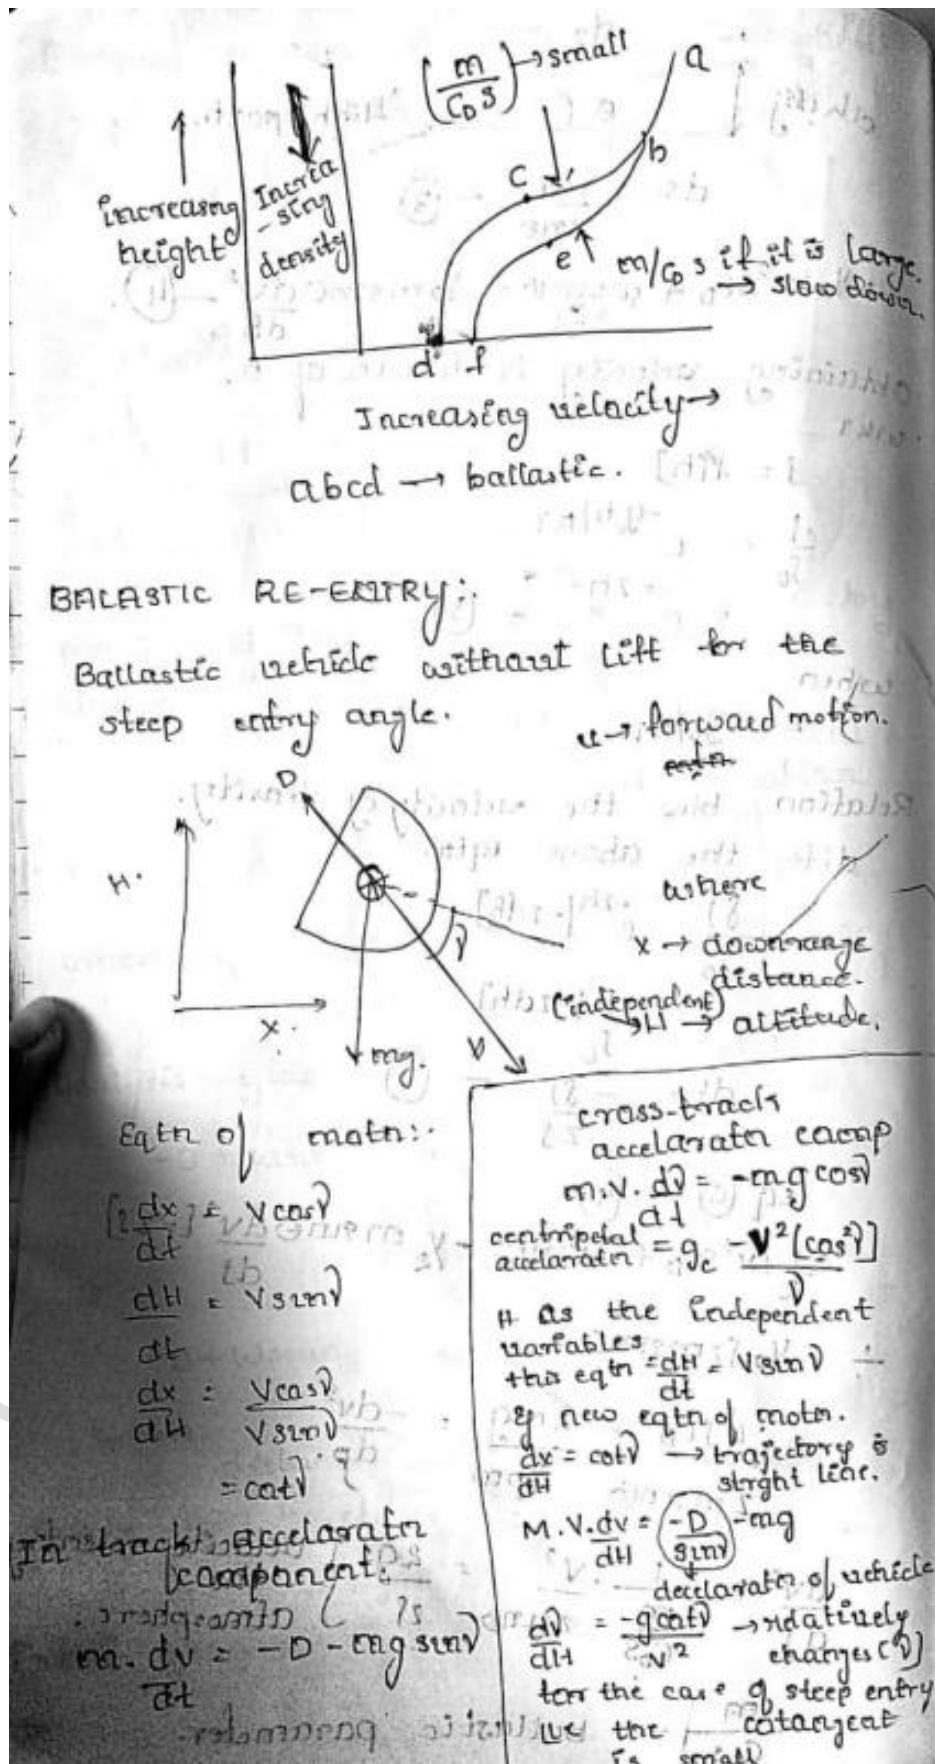 (m/C_D S) → small
a
b
c
e
increasing
height
Increa
-sing
density
m/C_D s if it is large.
→ slow down.
d f
Increasing velocity →
abcd → ballastic.
BALASTIC RE-ENTRY:.
Ballastic vehicle without lift for the
steep entry angle.
u → forward motion.
D
H.
X.
γ
mg.
V
where
x → downrange
distance.
(independent)
→ H → altitude.
Eqtn of motn:.
dx/dt = Vcosγ
dH/dt = Vsinγ
dx/dH = Vcosγ/Vsinγ
= cotγ
In track accelaratn
component:.
m. dv/dt = -D - mg sinγ
cross-track
accelaratn comp
m.V. dγ/dt = -mg cosγ
centripetal
accelaratn = g_c - V²[cos²γ]/γ
H as the independent
variables
this eqtn = dH/dt = Vsinγ
new eqtn of motn.
dx/dH = cotγ → trajectory is
strght line.
M.V. dv/dH = -D/sinγ - mg
decelaratn of vehicle
dγ/dH = -g cotγ/V² → relatively
changes (γ)
for the case of steep entry
the cotangent
is small